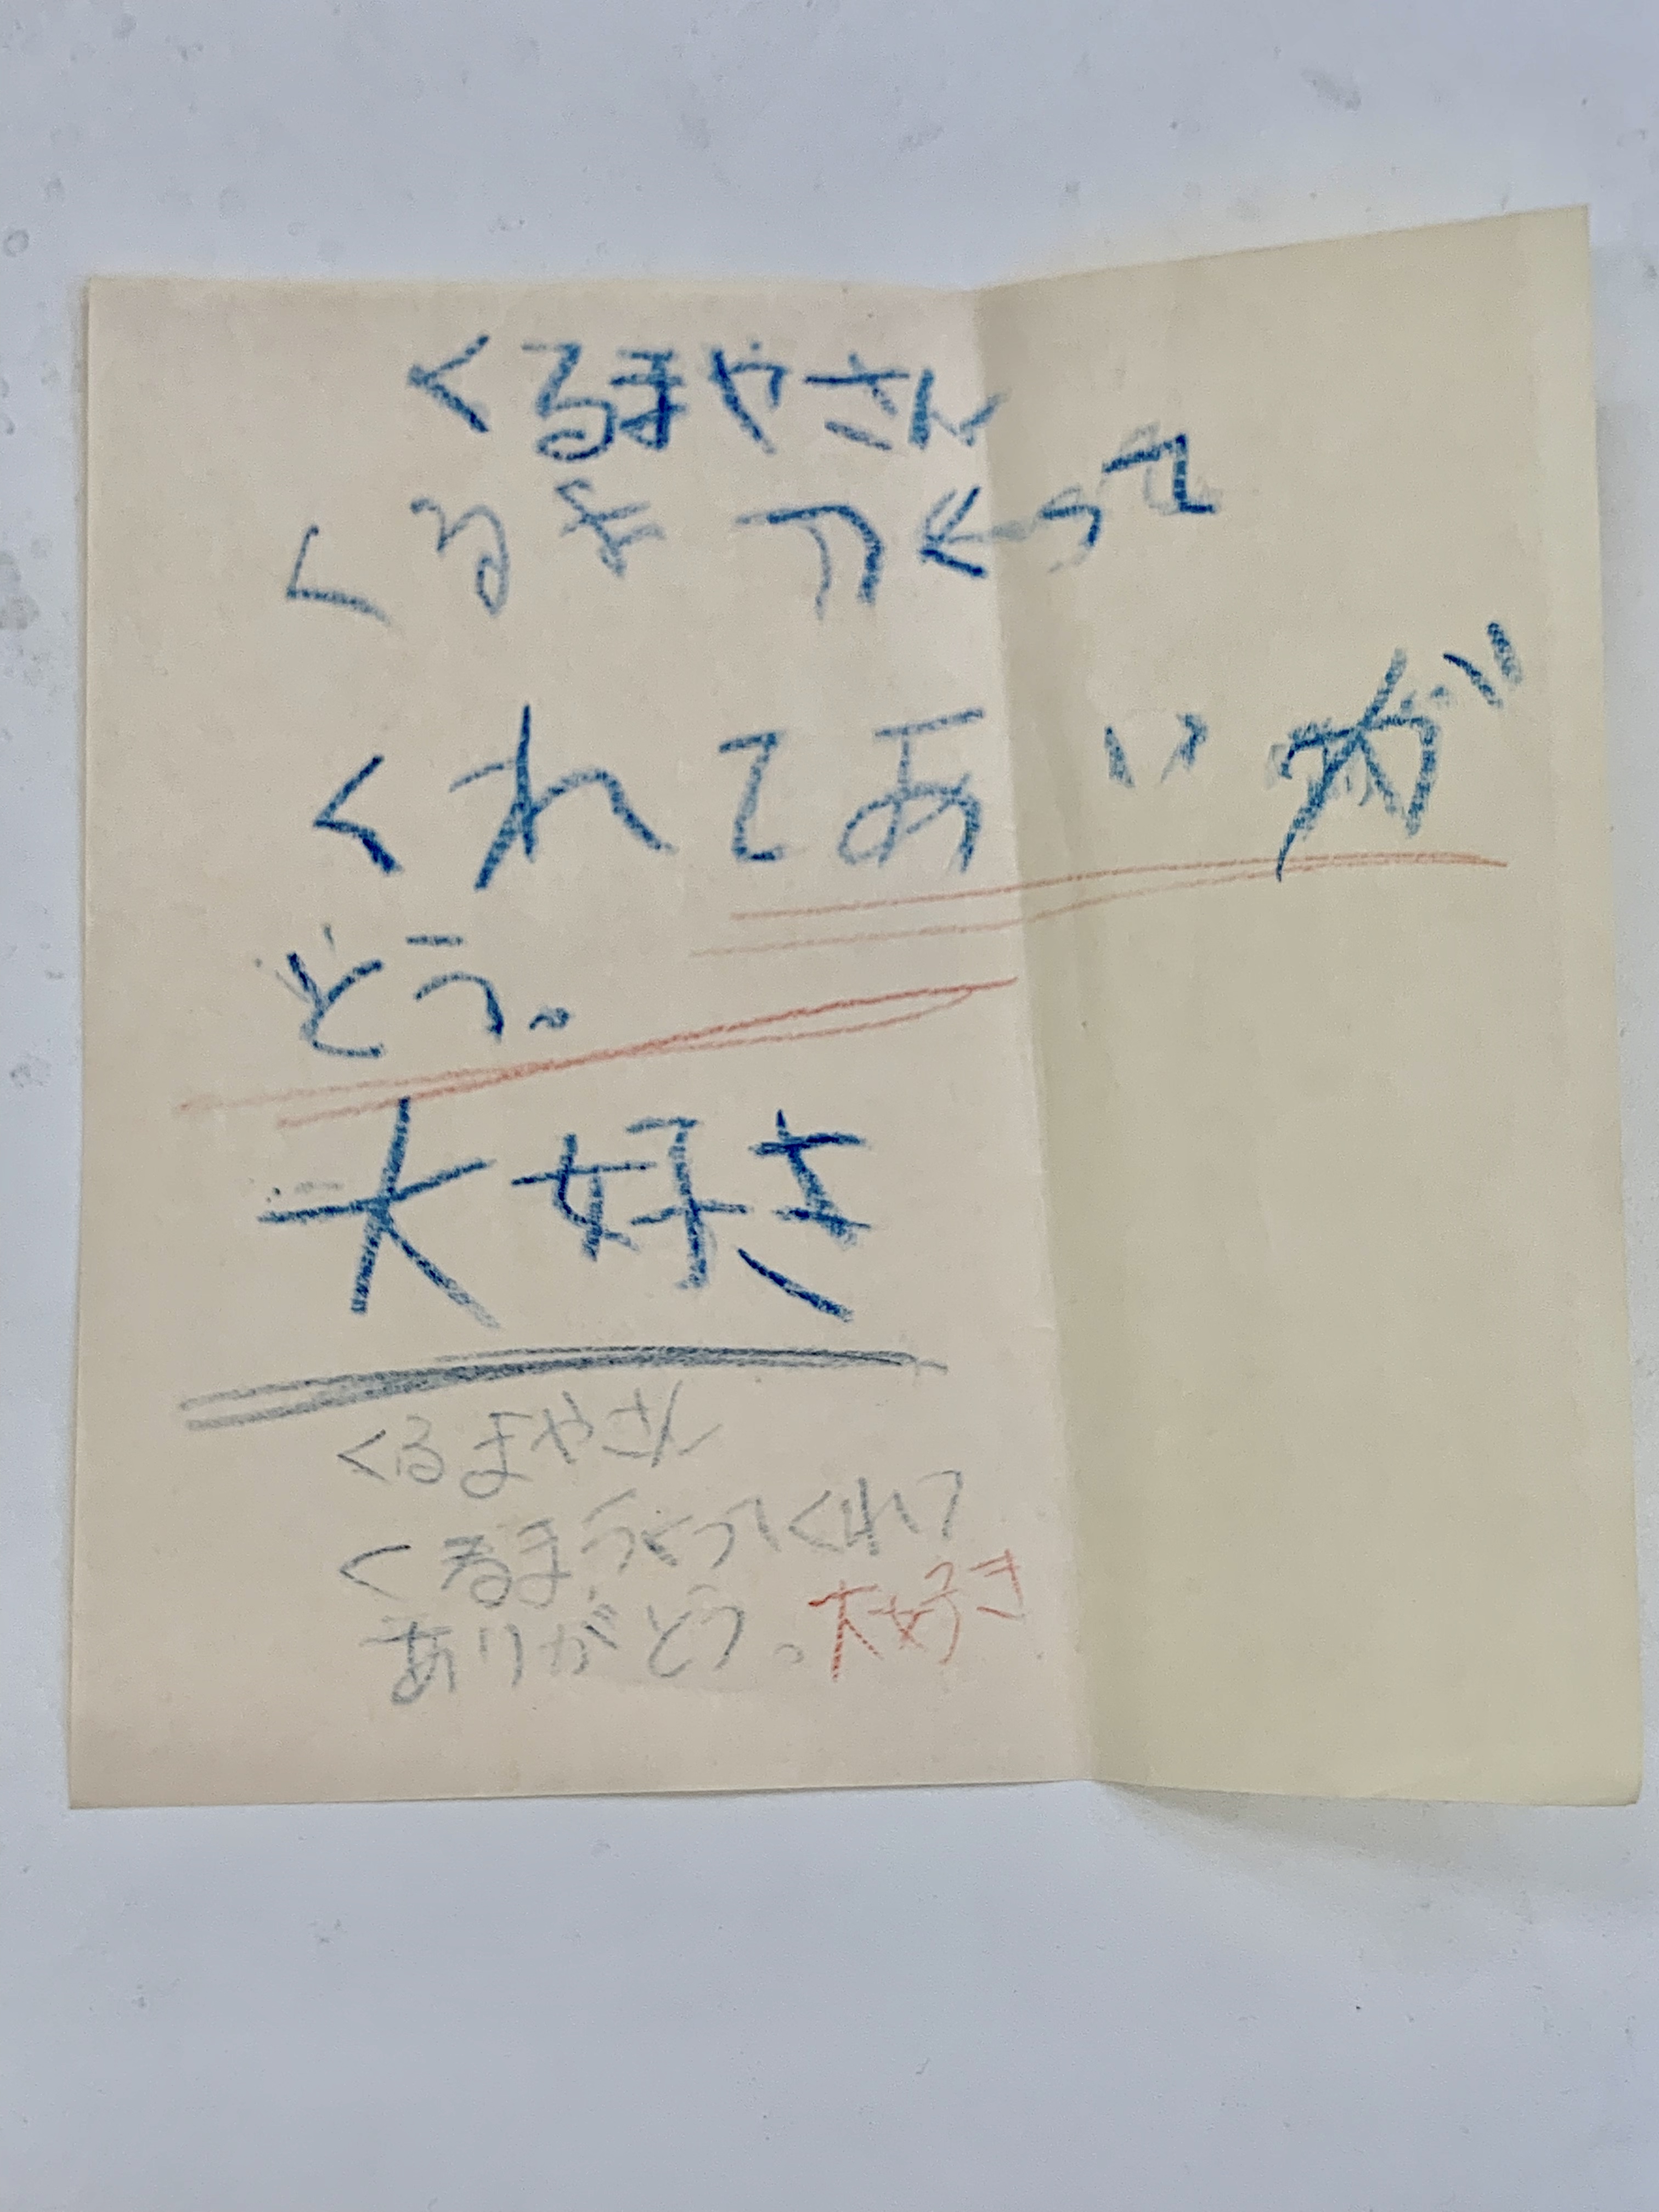 くるまやさん
くるまつくって
くれてありが
どう。
大好き
くるまやさん
くるまつくってくれて
ありがとう。大好き